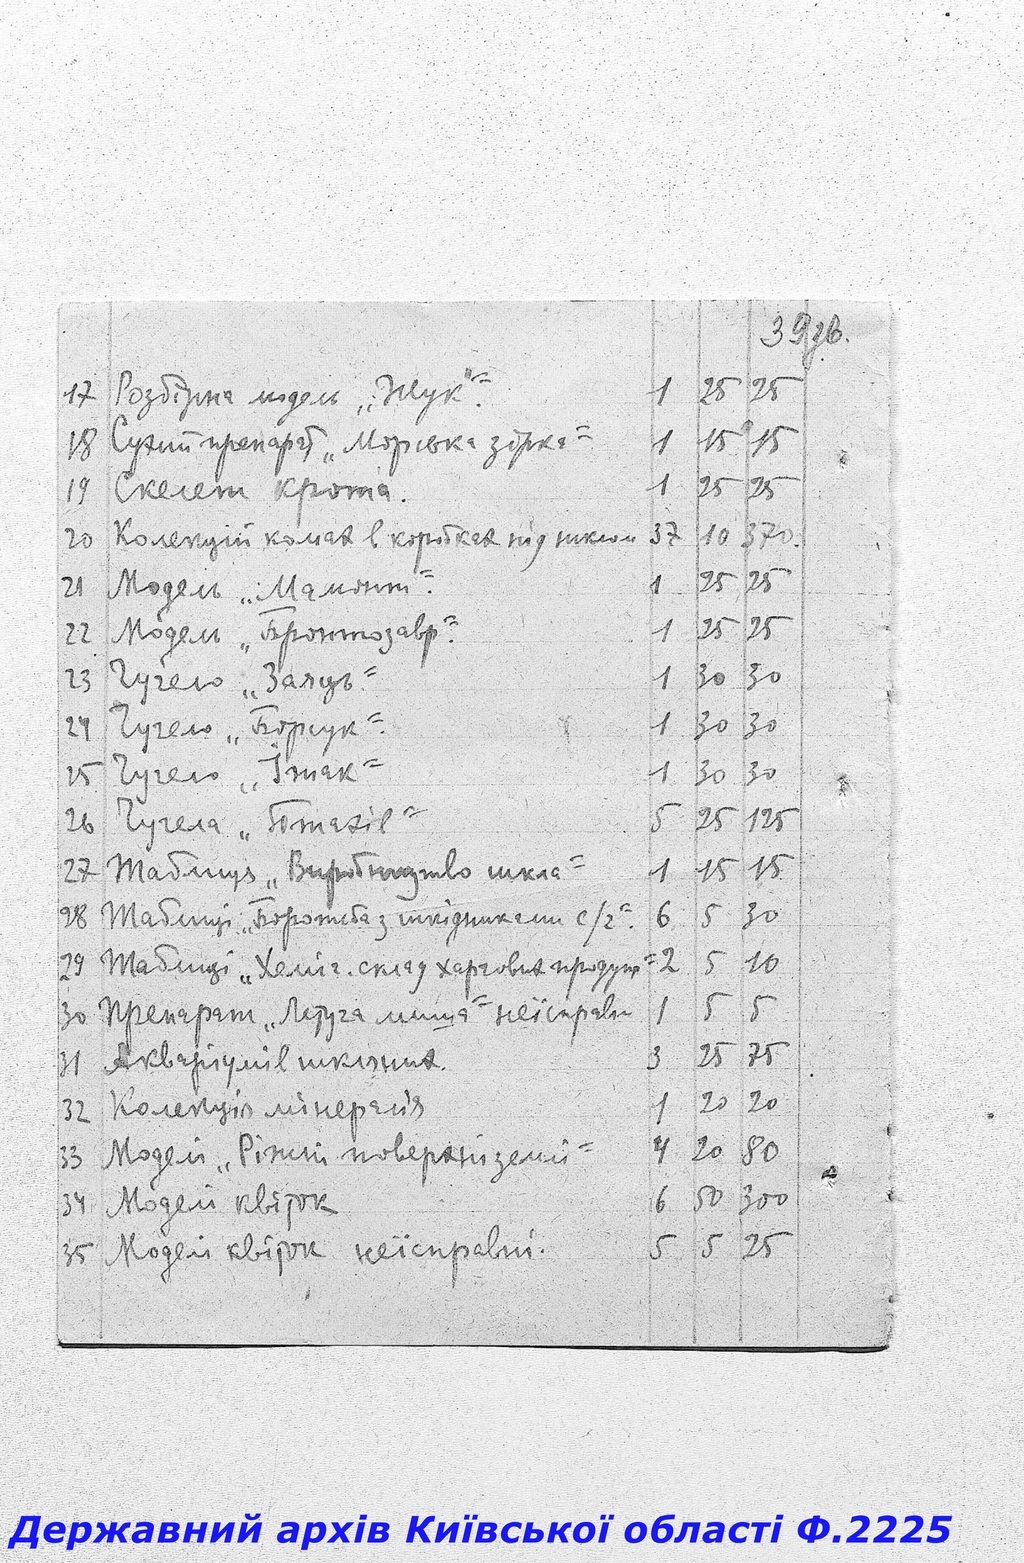 39 зв.
17 Розбірна модель „Жук“. 1 25 25
18 Сухий препарат „Морська зірка“ 1 15 15
19 Скелет крота. 1 25 25
20 Колекцій комах в коробках під шклом 37 10 370.
21 Модель „Мамонт“. 1 25 25
22 Модель „Бронтозавр“. 1 25 25
23 Чучело „Заяць“ 1 30 30
24 Чучело „Борсук“. 1 30 30
25 Чучело „Їжак“ 1 30 30
26 Чучела „Птахів“ 5 25 125
27 Таблиця „Виробництво шкла“ 1 15 15
28 Таблиці „Боротьба з шкідниками с/г“. 6 5 30
29 Таблиці „Хеміч. склад харчових продукт“ 2 5 10
30 Препарат „Летуча миша“ неїсправн 1 5 5
31 Акваріумів шкляних. 3 25 75
32 Колекція мінералів 1 20 20
33 Моделі „Ріжні поверхні землі“ 4 20 80
34 Моделі квіток 6 50 300
35 Моделі квіток неїсправні. 5 5 25
Державний архів Київської області Ф.2225